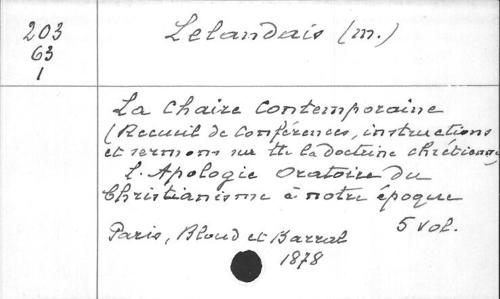 203
63
1
Lelandais (m.)
La Chaire Contemporaine
(Recueil de Conférences, instructions
et sermons sur tte la doctrine chrétienne
L. Apologie Oratoire du
Christianisme à notre époque
5 vol.
Paris, Bloud et Barral
1878